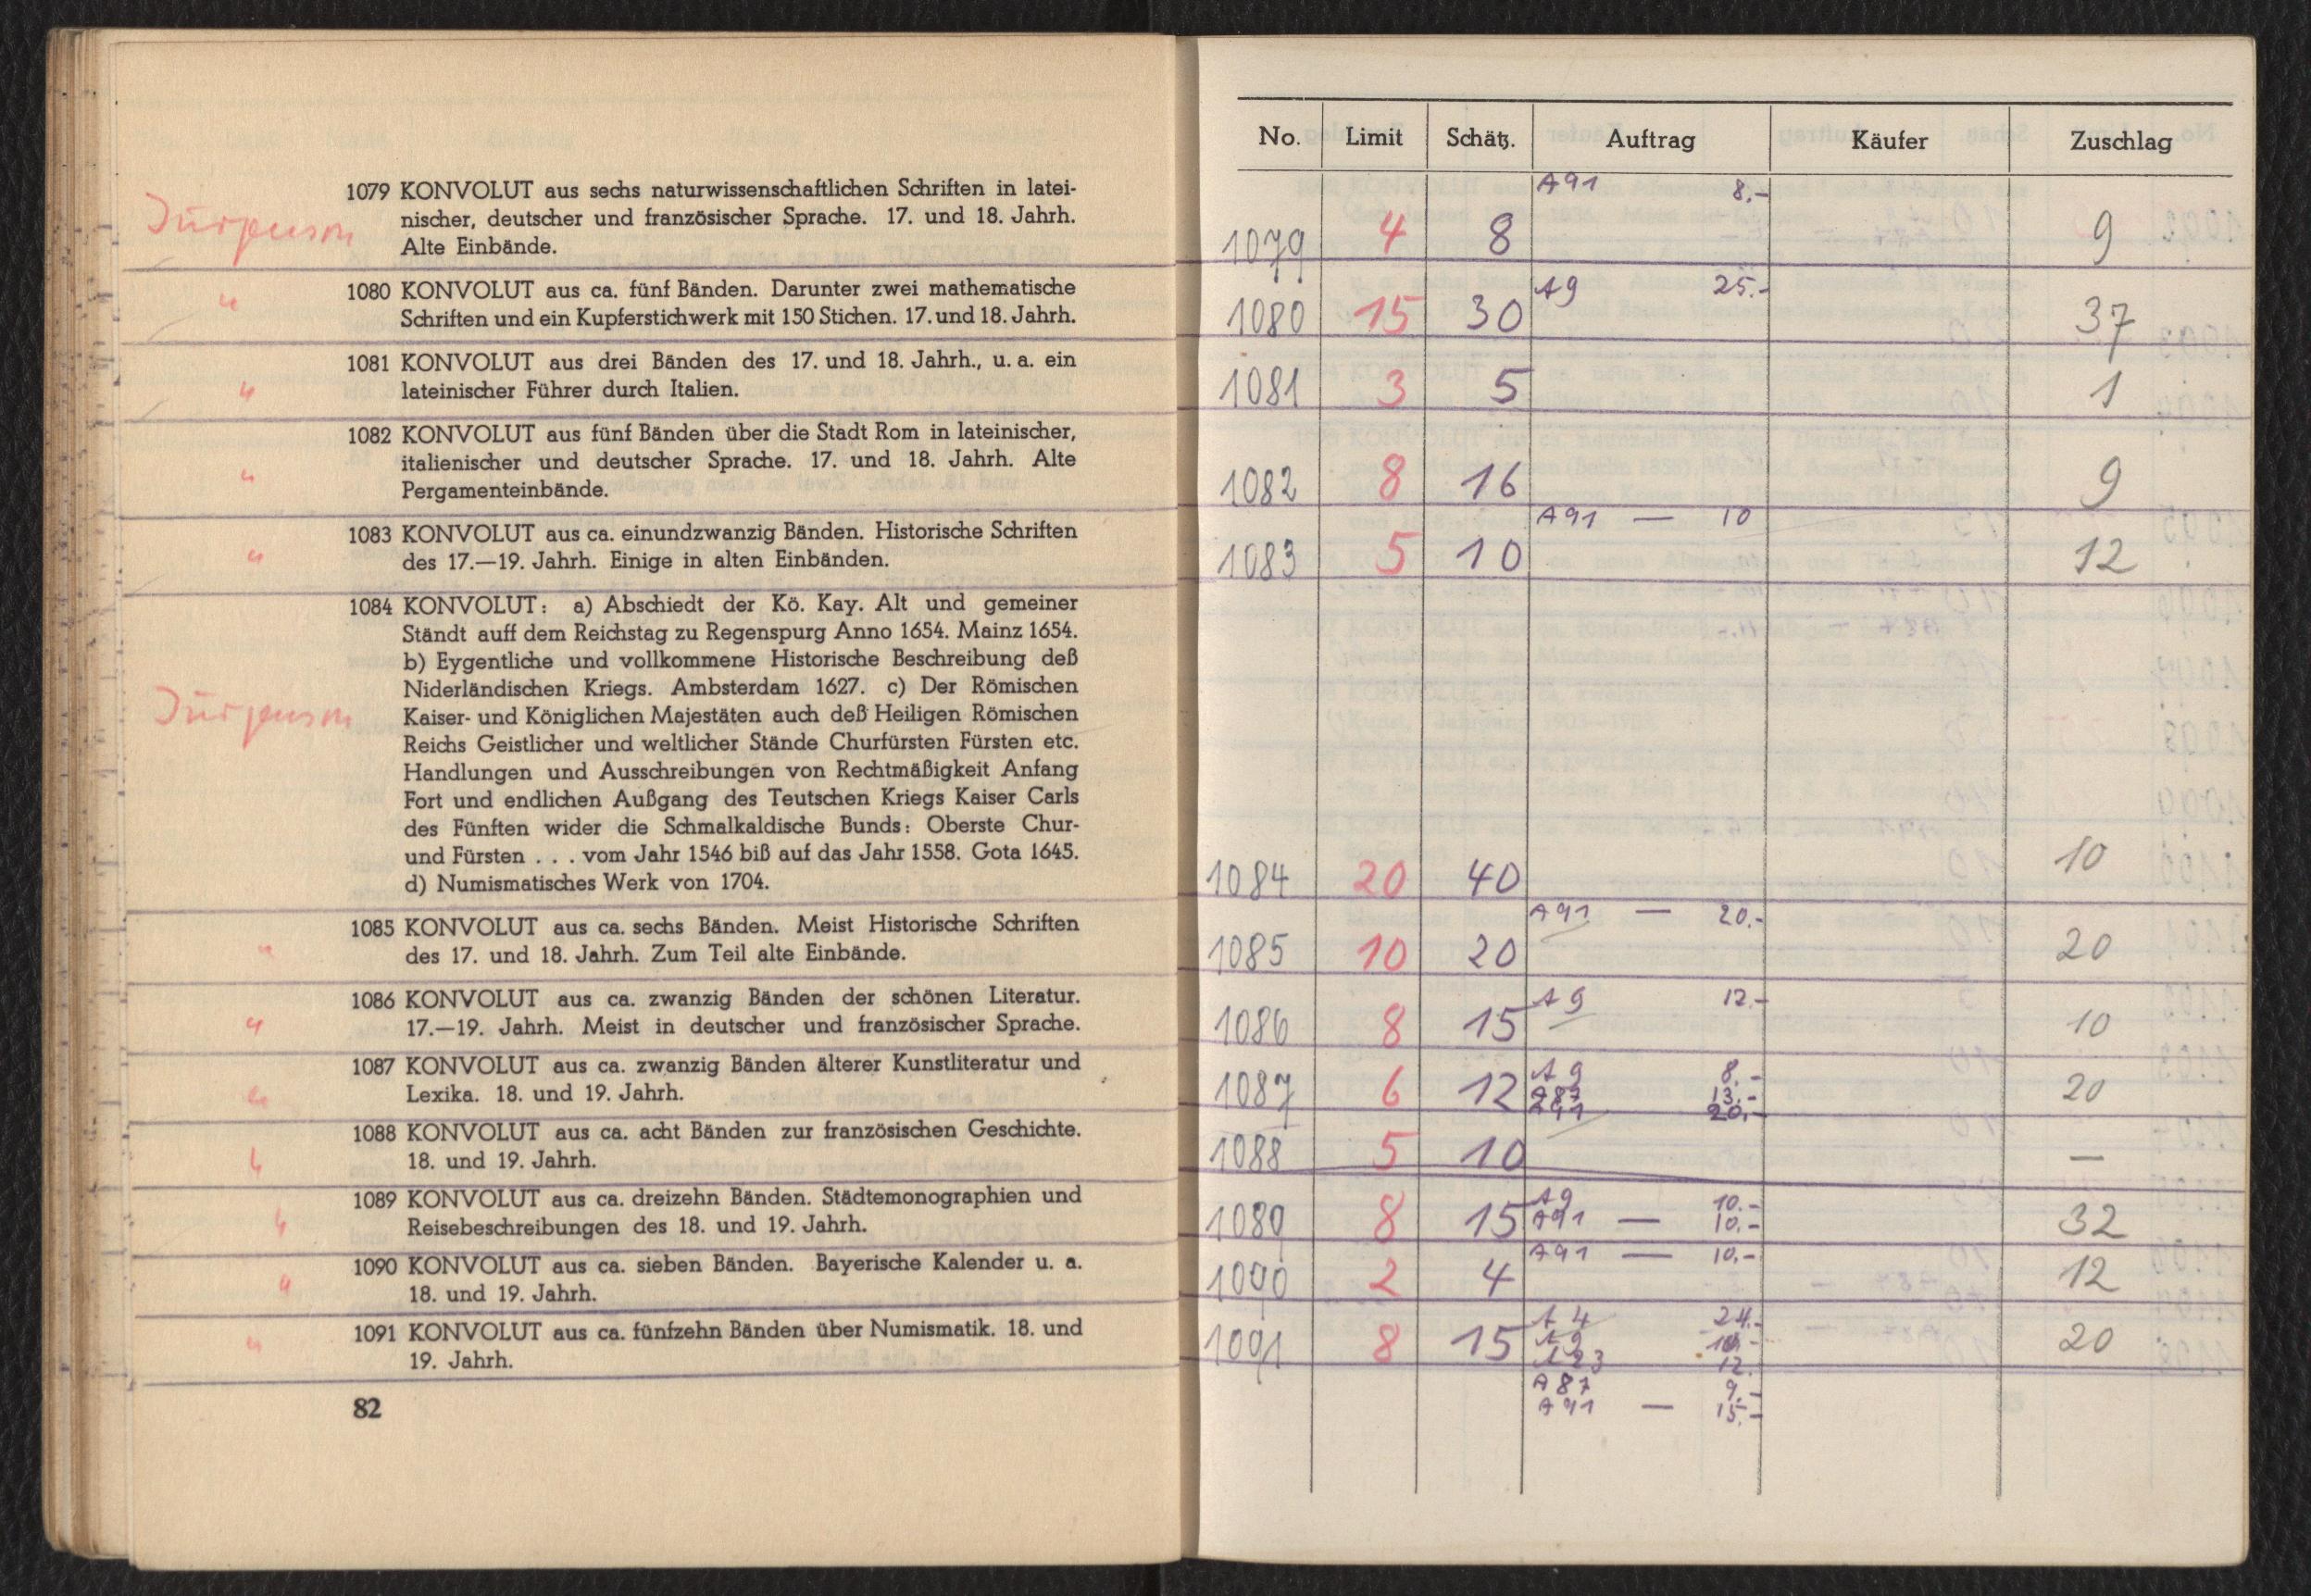 1079 KONVOLUT aus sechs naturwissenschaftlichen Schriften in latei-
nischer, deutscher und französischer Sprache. 17. und 18. Jahrh.
Alte Einbände.
1080 KONVOLUT aus ca. fünf Bänden. Darunter zwei mathematische
Schriften und ein Kupferstichwerk mit 150 Stichen. 17. und 18. Jahrh.
1081 KONVOLUT aus drei Bänden des 17. und 18. Jahrh., u. a. ein
lateinischer Führer durch Italien.
1082 KONVOLUT aus fünf Bänden über die Stadt Rom in lateinischer,
italienischer und deutscher Sprache. 17. und 18. Jahrh. Alte
Pergamenteinbände.
1083 KONVOLUT aus ca. einundzwanzig Bänden. Historische Schriften
des 17.—19. Jahrh. Einige in alten Einbänden.
1084 KONVOLUT: a) Abschiedt der Kö. Kay. Alt und gemeiner
Ständt auff dem Reichstag zu Regenspurg Anno 1654. Mainz 1654.
b) Eygentliche und vollkommene Historische Beschreibung deß
Niderländischen Kriegs. Ambsterdam 1627. c) Der Römischen
Kaiser- und Königlichen Majestäten auch deß Heiligen Römischen
Reichs Geistlicher und weltlicher Stände Churfürsten Fürsten etc.
Handlungen und Ausschreibungen von Rechtmäßigkeit Anfang
Fort und endlichen Außgang des Teutschen Kriegs Kaiser Carls
des Fünften wider die Schmalkaldische Bunds: Oberste Chur-
und Fürsten . . . vom Jahr 1546 biß auf das Jahr 1558. Gota 1645.
d) Numismatisches Werk von 1704.
1085 KONVOLUT aus ca. sechs Bänden. Meist Historische Schriften
des 17. und 18. Jahrh. Zum Teil alte Einbände.
1086 KONVOLUT aus ca. zwanzig Bänden der schönen Literatur.
17.—19. Jahrh. Meist in deutscher und französischer Sprache.
1087 KONVOLUT aus ca. zwanzig Bänden älterer Kunstliteratur und
Lexika. 18. und 19. Jahrh.
1088 KONVOLUT aus ca. acht Bänden zur französischen Geschichte.
18. und 19. Jahrh.
1089 KONVOLUT aus ca. dreizehn Bänden. Städtemonographien und
Reisebeschreibungen des 18. und 19. Jahrh.
1090 KONVOLUT aus ca. sieben Bänden. Bayerische Kalender u. a.
18. und 19. Jahrh.
1091 KONVOLUT aus ca. fünfzehn Bänden über Numismatik. 18. und
19. Jahrh.
82
No. Limit Schätz. Auftrag Käufer Zuschlag
A91 8.-
1079 4 8 9
A9 25.-
1080 15 30 37
1081 3 5 1
1082 8 16 9
A91 — 10
1083 5 10 12
1084 20 40 10
A91 — 20.-
1085 10 20 20
A9 12.-
1086 8 15 10
A9 8.-
1087 6 12 A87 13.- 20
A91 20.-
1088 5 10 —
A9 10.-
1089 8 15 A91 — 10.- 32
A91 — 10.-
1090 2 4 12
A4 24.-
1091 8 15 A9 20
12.
A87 9.-
A91 — 15.-